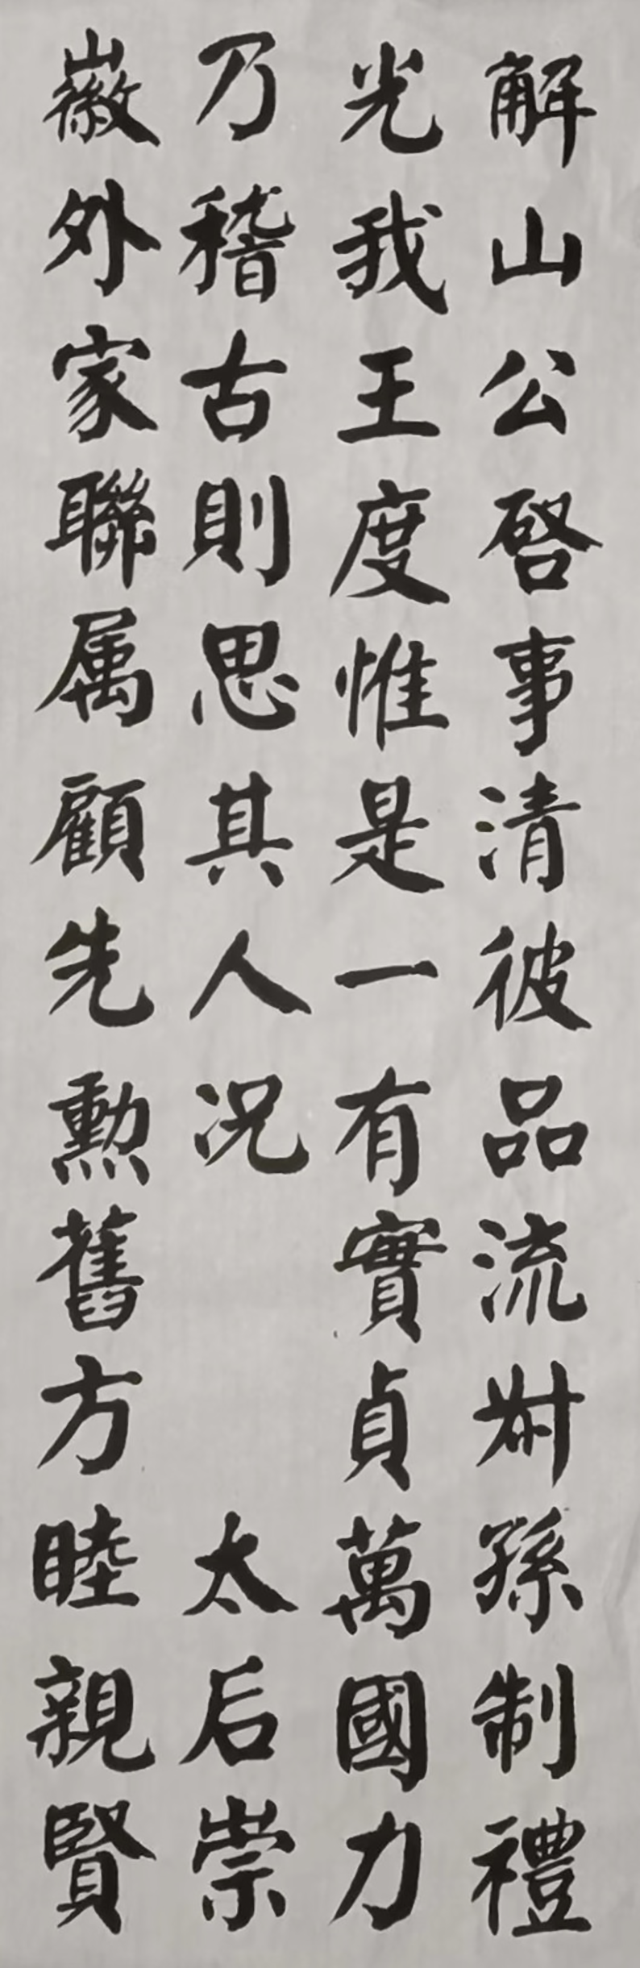 解山公啓事清彼品流叔孫制禮
光我王度惟是一有實貞萬國力
乃稽古則思其人况太后崇
徽外家聯属顧先勲舊方睦親賢